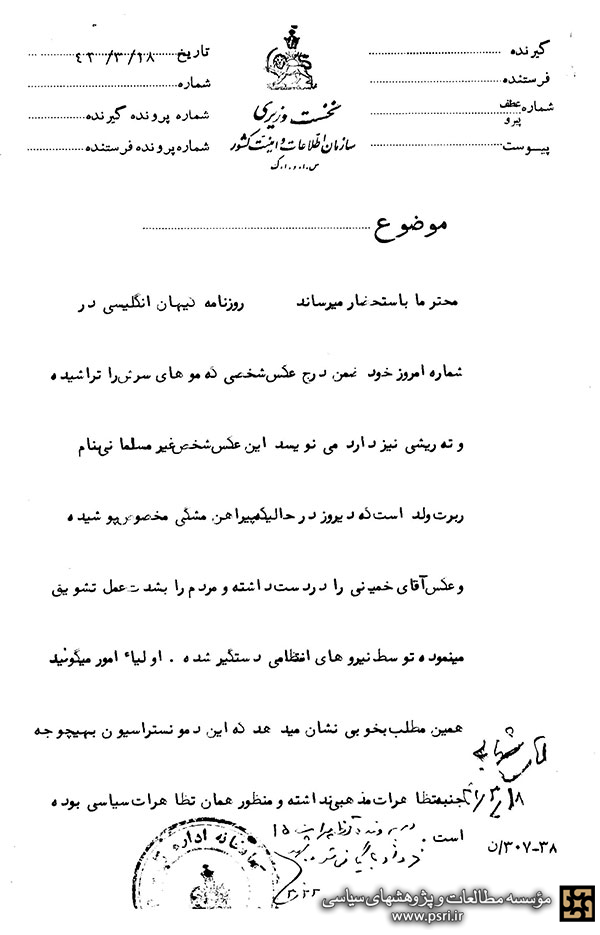 گیرنده
فرستنده
شماره عطف پیرو
پیوست
نخست وزیری
سازمان اطلاعات و امنیت کشور
س.ا.و.ا.ک
تاریخ ۴۳/۳/۱۸
شماره
شماره پرونده گیرنده
شماره پرونده فرستنده
موضوع
محترما باستحضار میرساند روزنامه کیهان انگلیسی در
شماره امروز خود ضمن درج عکس شخصی که موهای سرش را تراشیده
و ته ریشی نیز دارد می نویسد این عکس شخص غیر مسلمانی بنام
ربرت ولد است که دیروز در حالیکه پیراهن مشکی مخصوص پوشیده
و عکس آقای خمینی را در دست داشته و مردم را بشدت عمل تشویق
مینموده توسط نیروهای انتظامی دستگیر شده . اولیاء امور میگوئید
همین مطلب بخوبی نشان میدهد که این دمونستراسیون بهیچوجه
جنبه تظاهرات مذهبی نداشته و منظور همان تظاهرات سیاسی بوده
است .
در پرونده تظاهرات ۱۵
۳۰۷-۳۸/ن
مؤسسه مطالعات و پژوهشهای سیاسی
www.psri.ir